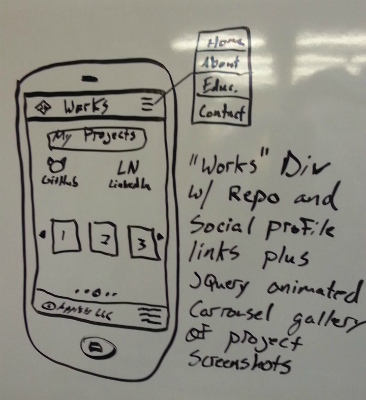 Home
About
Educ.
Contact
Works
My Projects
GitHub
LN
LinkedIn
1 2 3
LLC
"Works" Div
w/ Repo and
Social profile
links plus
JQuery animated
Carrousel gallery
of project
Screenshots